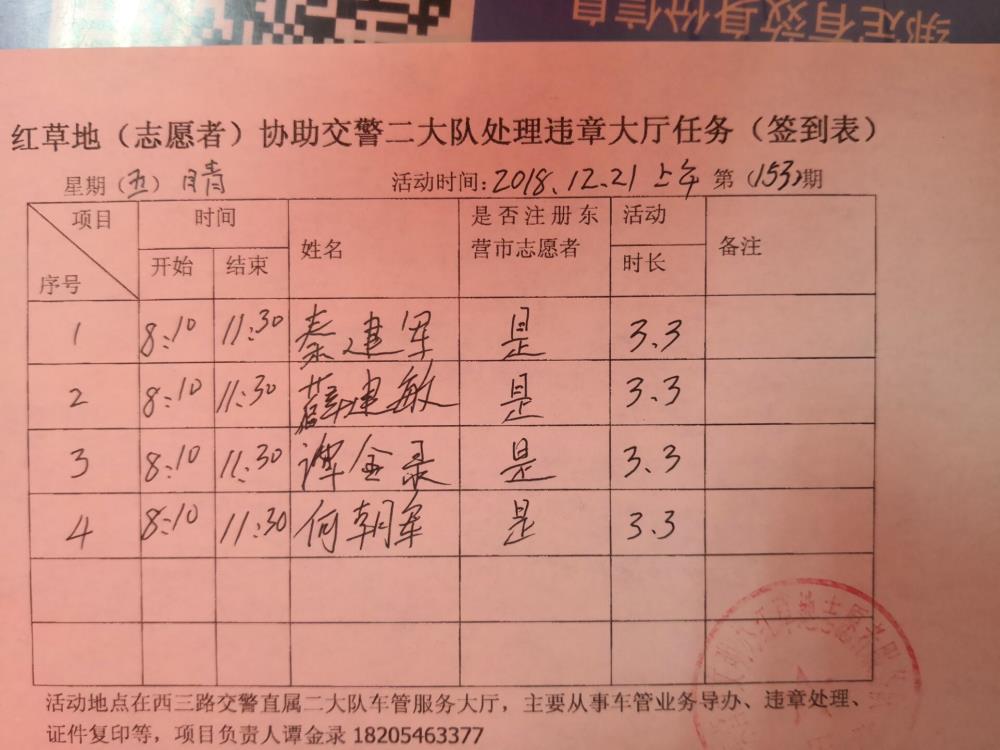 绑定有效身份信息
红草地（志愿者）协助交警二大队处理违章大厅任务（签到表）
星期（五） 晴 活动时间:2018.12.21 上午 第（153）期
项目 时间 姓名 是否注册东 活动 备注
序号 开始 结束 营市志愿者 时长
1 8:10 11:30 秦建军 是 3.3
2 8:10 11:30 薛建敏 是 3.3
3 8:10 11:30 谭金录 是 3.3
4 8:10 11:30 何朝军 是 3.3
活动地点在西三路交警直属二大队车管服务大厅，主要从事车管业务导办、违章处理、
证件复印等，项目负责人谭金录 18205463377